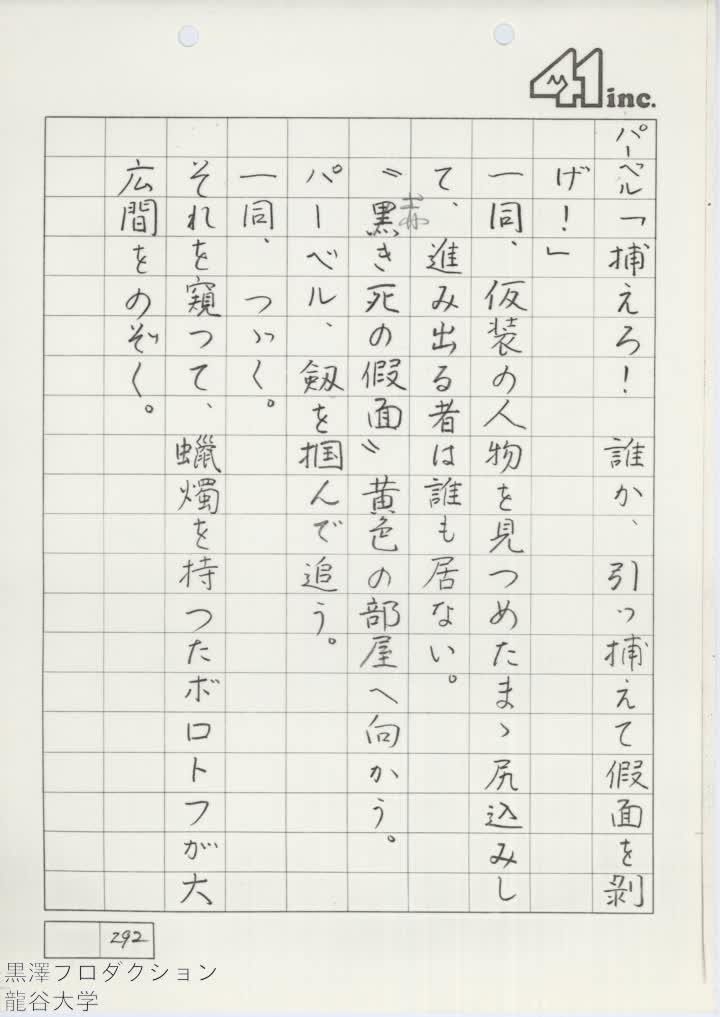 41 inc.
パーベル「捕えろ！　誰か、　引ッ捕えて假面を剝
げ！」
一同、仮装の人物を見つめたまゝ尻込みし
て、進み出る者は誰も居ない。
赤
〝黒き死の假面〟黄色の部屋へ向かう。
パーベル、劔を掴んで追う。
一同、つゞく。
それを窺つて、蠟燭を持つたボロトフが大
広間をのぞく。
292
黒澤フロダクション
龍谷大学